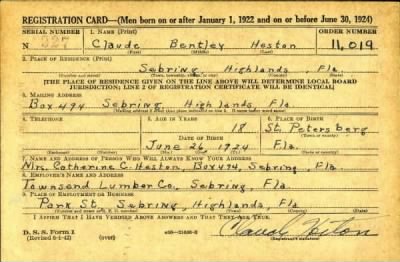 REGISTRATION CARD—(Men born on or after January 1, 1922 and on or before June 30, 1924)
SERIAL NUMBER 1. NAME (Print) ORDER NUMBER
N 227 Claude Bentley Heston 11,019
(First) (Middle) (Last)
2. PLACE OF RESIDENCE (Print)
Sebring Highlands Fla
(THE PLACE OF RESIDENCE GIVEN ON THE LINE ABOVE WILL DETERMINE LOCAL BOARD
JURISDICTION; LINE 2 OF REGISTRATION CERTIFICATE WILL BE IDENTICAL)
3. MAILING ADDRESS
Box 494 Sebring Highlands Fla
4. TELEPHONE 5. AGE IN YEARS 6. PLACE OF BIRTH
18 St. Petersberg
DATE OF BIRTH (Town or county)
June 26, 1924 Fla.
(Mo.) (Day) (Yr.) (State or country)
7. NAME AND ADDRESS OF PERSON WHO WILL ALWAYS KNOW YOUR ADDRESS
Mrs. Catharine C. Heston, Box 494, Sebring, Fla.
8. EMPLOYER'S NAME AND ADDRESS
Townsend Lumber Co., Sebring, Fla
9. PLACE OF EMPLOYMENT OR BUSINESS
Park St. Sebring, Highlands, Fla
I AFFIRM THAT I HAVE VERIFIED ABOVE ANSWERS AND THAT THEY ARE TRUE.
D. S. S. Form 1
(Revised 6-1-42) (over) Claude Heston
(Registrant's signature)